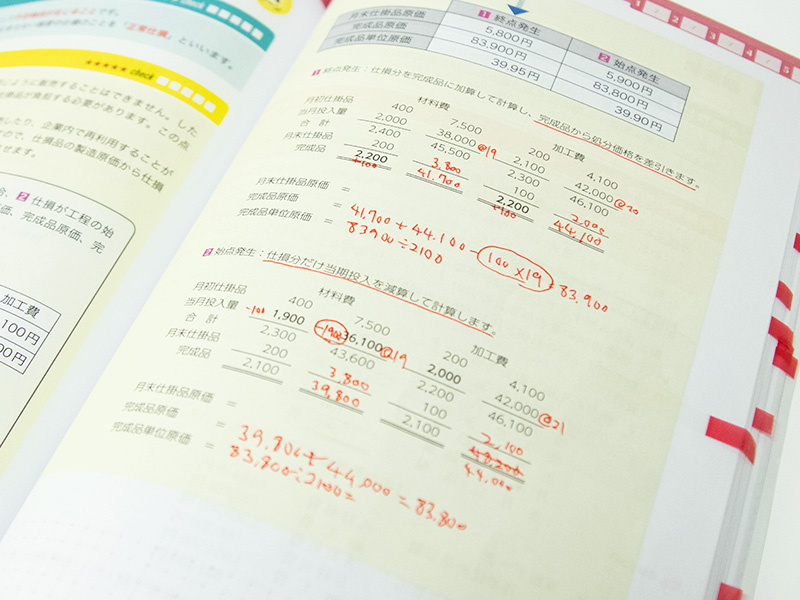 check
「正常仕損」といいます。
★★★★★ check
ように販売することはできません。した
負担する必要があります。この点
したり、企業内で再利用することが
ので、仕損品の製造原価から仕損
せます。
2 仕損が工程の始
価、完成品原価、完
加工費
100円
00円
1 2 3 4 5
1 終点発生 2 始点発生
月末仕掛品原価 5,800円 5,900円
完成品原価 83,900円 83,800円
完成品単位原価 39.95円 39.90円
1 終点発生：仕損分を完成品に加算して計算し、完成品から処分価格を差引きます。
材料費 加工費
月初仕掛品 400 7,500 200 4,100
当月投入量 2,000 38,000 @19 2,100 42,000 @20
合 計 2,400 45,500 2,300 46,100
月末仕掛品 200 3.800 100 2,000
完成品 2,200 41,700 2,200 44,100
+100 +100
月末仕掛品原価 =
完成品原価 = 41.900 + 44.100 - 100×19 = 83.900
完成品単位原価 = 83900÷2100
2 始点発生：仕損分だけ当期投入を減算して計算します。
材料費 加工費
月初仕掛品 400 7,500 200 4,100
当月投入量 -100 1,900 -1900 36,100 @19 2,000 42,000 @21
合 計 2,300 43,600 2,200 46,100
月末仕掛品 200 3.800 100 2,100
完成品 2,100 39,800 2,100 44.000
月末仕掛品原価 =
完成品原価 = 39,800 + 44,000 = 83,800
完成品単位原価 = 83,800÷2100=